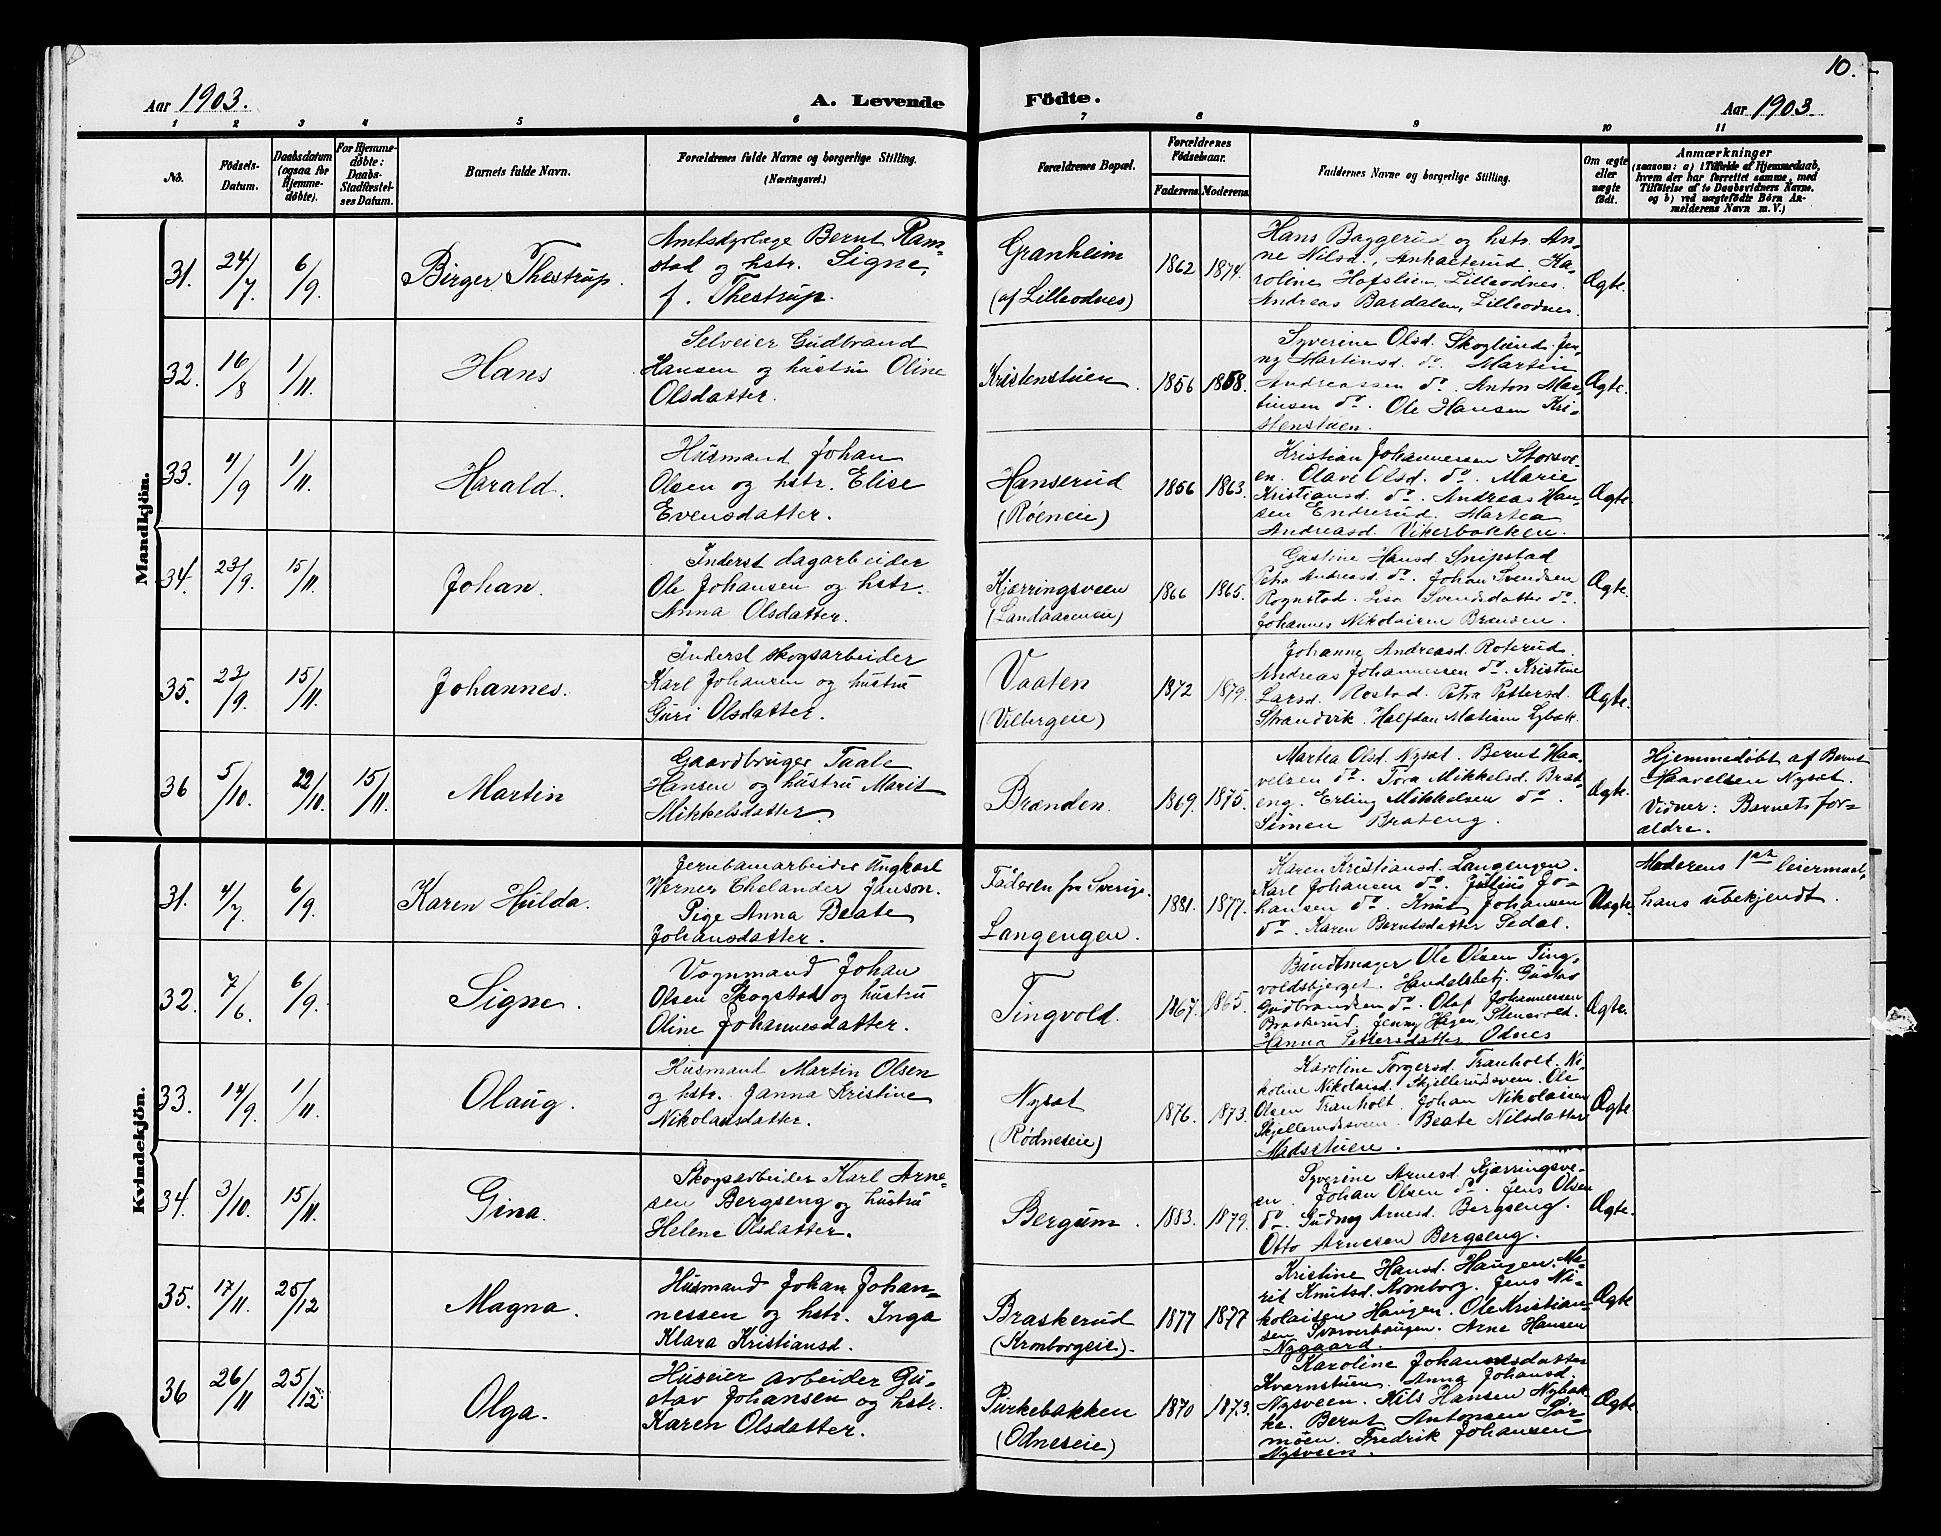 10.
Aar 1903.
A. Levende Födte.
Aar 1903.
1 2 3 4 5 6 7 8 9 10 11
No.
Födsels-
Datum.
Daabsdatum
(ogsaa for
Hjemme-
döbte).
For Hjemme-
døbte:
Daabs-
Stadfæstel-
ses Datum.
Barnets fulde Navn.
Forældrenes fulde Navne og borgerlige Stilling.
(Næringsvei.)
Forældrenes Bopæl.
Forældrenes
Födselsaar.
Faderens. Moderens.
Faddernes Navne og borgerlige Stilling.
Om ægte
eller
uægte
födt.
Anmærkninger
(saasom: a) i Tilfælde af Hjemmedaab,
hvem der har forrettet samme, med
Tilföielse af to Daabsvidners Navne.
og b) ved uægtefödte Börn An-
melderens Navn m. V.)
Mandkjön.
31.
24/7
6/9
Birger Thestrup.
Amtsdyrlæge Bernt Ram-
stad og hstr. Signe,
f. Thestrup.
Granheim
(af Lilleodnes)
1862
1874.
Hans Baggerud og hstr. An-
ne Nilsd., Anhalterud, Ka-
roline Hofslien, Lilleodnes.
Andreas Bardalen, Lilleodnes.
Ægte.
32.
16/8
1/11.
Hans
Selveier Gudbrand
Hansen og hustru Oline
Olsdatter.
Kristenstuen.
1856
1858.
Syverine Olsd. Skoglund. Jen-
ny Martinsd. do. Martin
Andreassen do. Anton Mar-
tinsen do. Ole Hansen Kri-
stenstuen.
Ægte.
33.
4/9
1/11.
Harald.
Husmand Johan
Olsen og hstr. Elise
Evensdatter.
Hanserud
(Röeneie)
1856
1863.
Kristian Johannessen Storsve-
en. Olave Olsd. do. Marie
Kristiansd. do. Andreas Han-
sen Endrerud. Martea
Andreasd. Vikerbakken.
Ægte.
34.
23/9.
15/11.
Johan.
Inderst dagarbeider
Ole Johansen og hstr.
Anna Olsdatter.
Kjærringsveen
(Landaaseneie)
1866
1865.
Gustine Hansd. Snipstad
Petra Andreasd. do. Johan Svendsen
Rognstad. Lisa Svendsdatter do.
Johannes Nikolaisen Brænden.
Ægte.
35.
23/9.
15/11.
Johannes.
Inderst skogsarbeider
Karl Johansen og hustru
Guri Olsdatter.
Vaaten
(Vilbergeie)
1872
1879.
Johanne Andreasd. Roterud.
Andreas Johannessen do. Kristine
Larsd. Rostad. Petra Pettersd.
Strandvik. Halfdan Matisen Lybæk.
Ægte.
36
5/10.
22/10.
15/11.
Martin
Gaardbruger Taale
Hansen og hustru Marit
Mikkelsdatter.
Brænden.
1869.
1875.
Martea Olsd. Nysæt. Bernt Haa-
velsen do. Tora Mikkelsd. Brat-
eng. Erling Mikkelsen do.
Simen Brateng.
Ægte.
Hjemmedøbt af Bernt
Haavelsen Nysæt.
Vidner: Barnets for-
ældre.
Kvindekjön.
31.
4/7.
6/9.
Karen Hulda.
Jernbanearbeider Ungkarl
Werner Thelander Janson.
Pige Anna Beate
Johansdatter.
Faderen fra Sverige.
Langengen.
1881.
1877.
Karen Kristiansd. Langengen.
Karl Johansen do. Julius Jo-
hansen do. Knut Johansen
do. Karen Berntsdatter Sedal.
Uægte.
Moderens 1ste leiermaal,
hans ubekjendt.
32.
7/6.
6/9.
Signe.
Vognmand Johan
Olsen Skogstad og hustru
Oline Johannesdatter.
Tingvold.
1867.
1865.
Bundtmager Ole Olsen Ting-
voldsbjerget. Handelsbetj. Gustav
Gudbrandsen do. Olaf Johannessen
Braskerud, Jenny Hegen, Stensvold.
Hanna Pettersdatter Odnes
Ægte.
33.
14/9.
1/11.
Olaug.
Husmand Martin Olsen
og hstr. Janna Kristine
Nikolaisdatter.
Nysæt
(Rødneseie)
1876.
1873
Karoline Torgersd. Tranholt. Ni-
koline Nikolaisd. Skjellerudsveen. Ole
Olsen Tranholt. Johan Nikolaisen
Skjellerudsveen. Beate Nilsdatter
Madsstuen.
Ægte
34.
3/10.
15/11.
Gina.
Skogsarbeider Karl Arne-
sen Bergseng og hustru
Helene Olsdatter.
Bergum.
1883.
1879.
Syverine Arnesd. Kjærringsve-
en. Johan Olsen do. Jens Olsen
do. Gudny Arnesd. Bergseng.
Otto Arnesen Bergseng.
Ægte.
35.
17/11.
25/12
Magna.
Husmand Johan Johan-
nessen og hstr. Inga
Klara Kristiansd.
Braskerud
(Kronborgeie).
1877
1877
Kristine Hansd. Haugen. Ma-
rit Knutsd. Kronborg. Jens Ni-
kolaisen Haugen. Ole Kristian-
sen Svarverhaugen. Arne Hansen
Nygaard.
Ægte
36
26/11
25/12.
Olga.
Huseier arbeider Gu-
stav Johansen og hstr.
Karen Olsdatter.
Purkebakken
(Odneseie)
1870
1873.
Karoline Johannesdatter
Kvernstuen. Anna Johansd.
Nysveen. Nils Hansen Nybak-
ke. Bernt Antonsen Sør-
møen. Fredrik Johansen
Nysveen.
Ægte